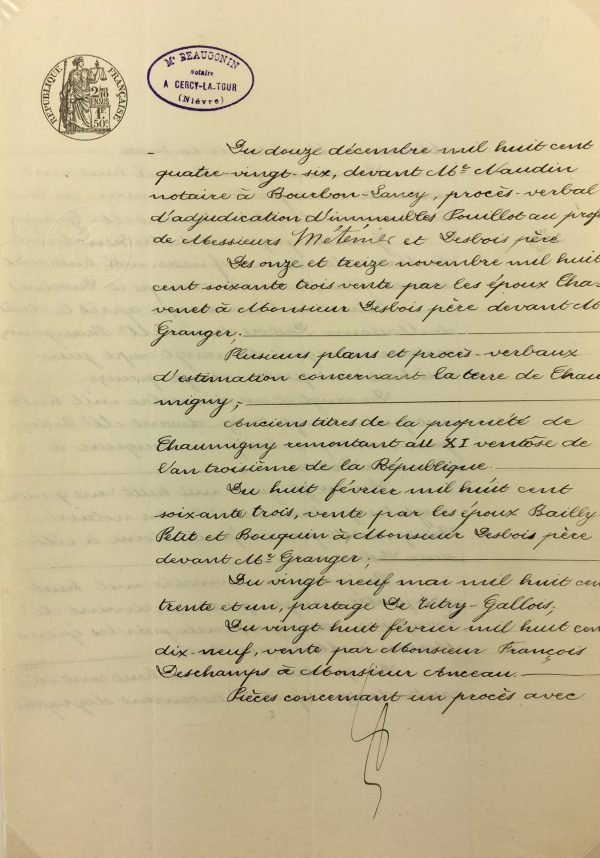 RÉPUBLIQUE FRANÇAISE
2/10 EN SUS
1F 50c
Me BEAUGONIN
Notaire
A CERCY-LA-TOUR
(Nièvre)
Du douze décembre mil huit cent
quatre-vingt-six, devant Me Naudin
notaire à Bourbon-Lancy, procès-verbal
d'adjudication d'immeubles Pouillot au prof
de Messieurs Méténier et Desbois père
Des onze et treize novembre mil huit
cent soixante trois vente par les époux Cha-
venet à Monsieur Desbois père devant M
Granger;
Plusieurs plans et procès-verbaux
d'estimation concernant la terre de Chau
migny;
Anciens titres de la propriété de
Chaumigny remontant au XI ventôse de
l'an troisième de la République.
Du huit février mil huit cent
soixante trois, vente par les époux Bailly-
Petit et Bouquin à Monsieur Desbois père
devant Me Granger;
Du vingt neuf mai mil huit cen
trente et un, partage De Vitry-Gallois;
Du vingt huit février mil huit cen
dix-neuf, vente par Monsieur François
Deschamps à Monsieur Anceau.
Pièces concernant un procès avec